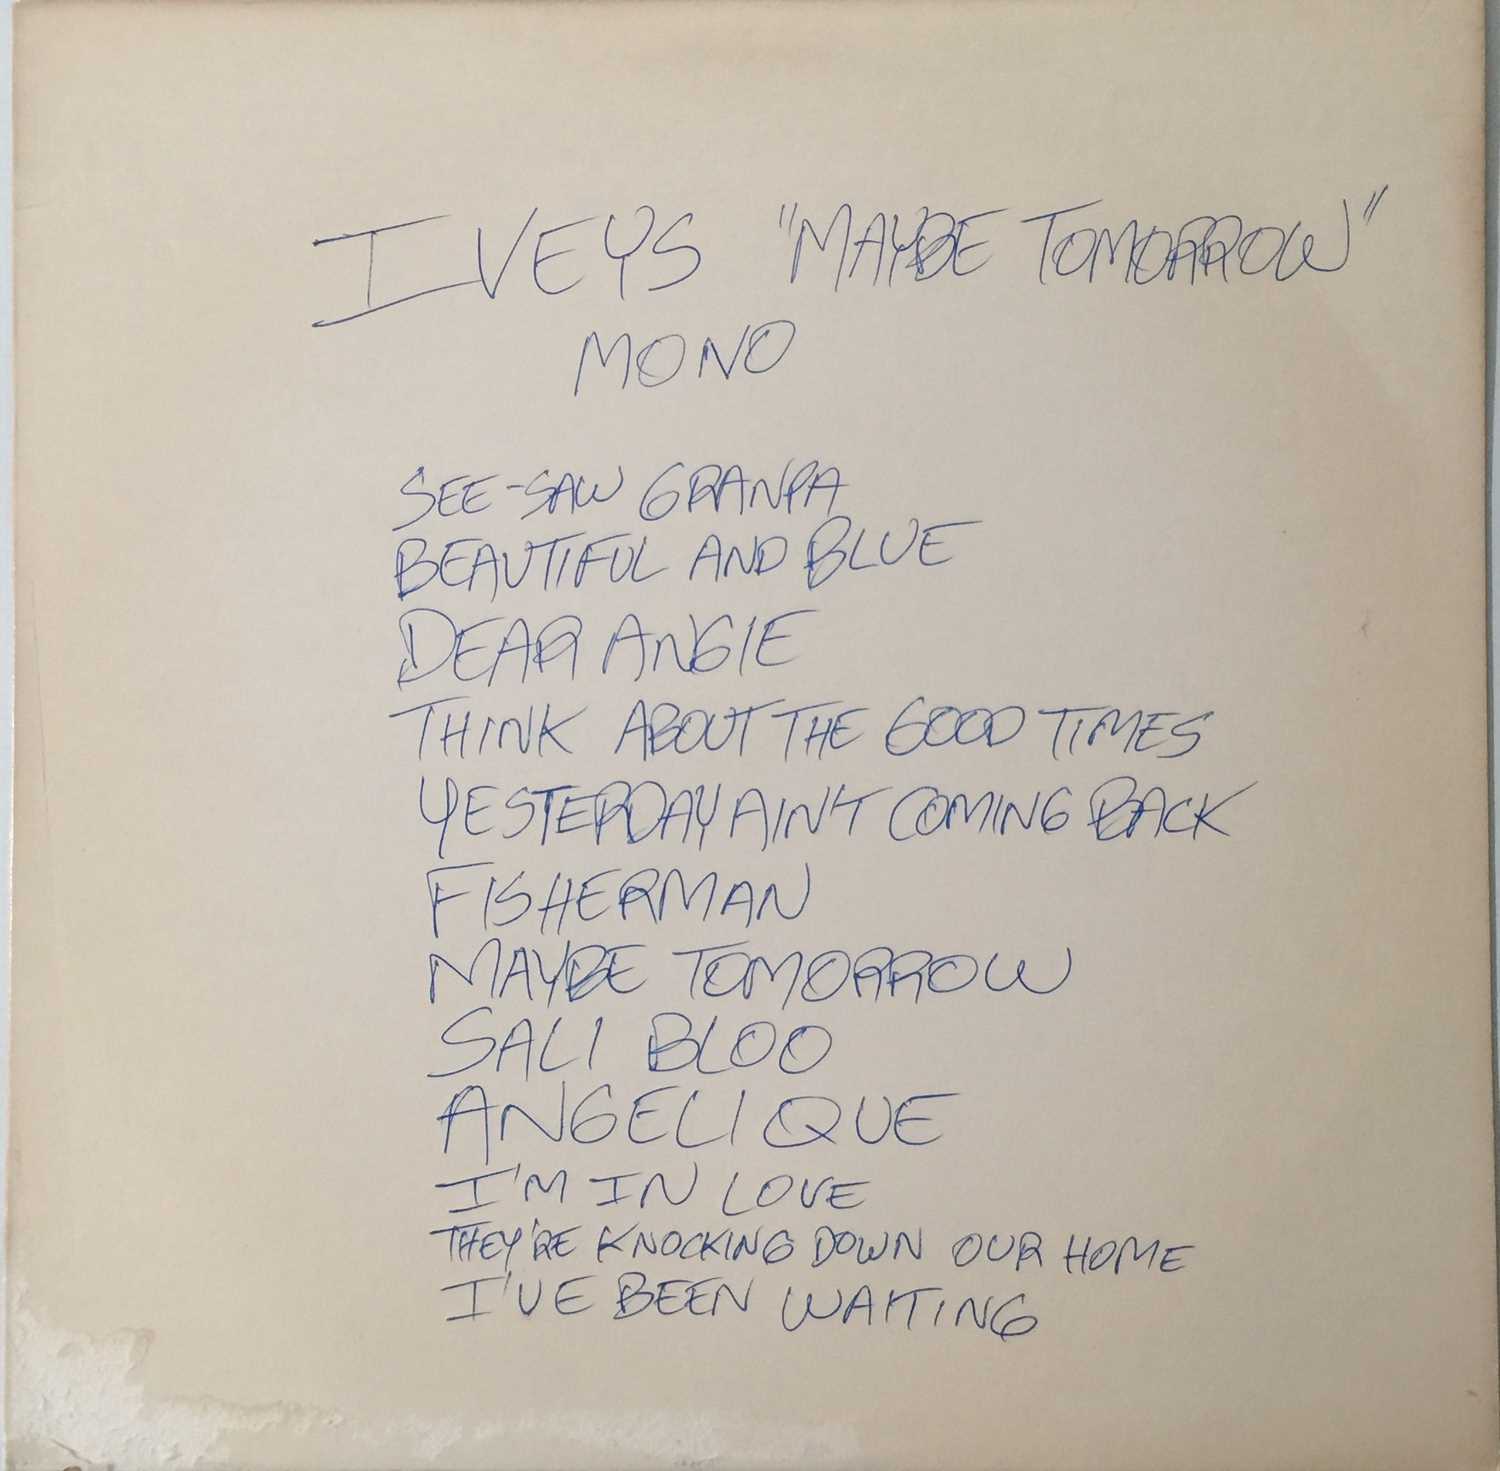 IVEYS "MAYBE TOMORROW"
MONO
SEE-SAW GRANPA
BEAUTIFUL AND BLUE
DEAR ANGIE
THINK ABOUT THE GOOD TIMES
YESTERDAY AIN'T COMING BACK
FISHERMAN
MAYBE TOMORROW
SALI BLOO
ANGELIQUE
I'M IN LOVE
THEY'RE KNOCKING DOWN OUR HOME
I'VE BEEN WAITING